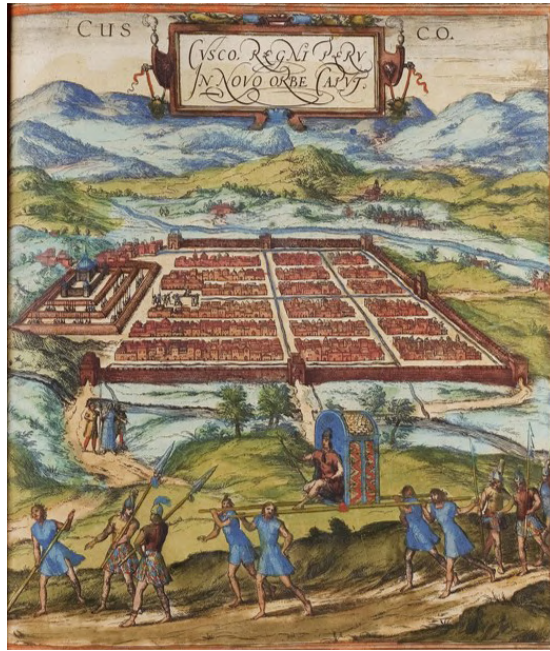 CUSCO.
CVSCO, REGNI PERV
IN NOVO ORBE CAPVT.